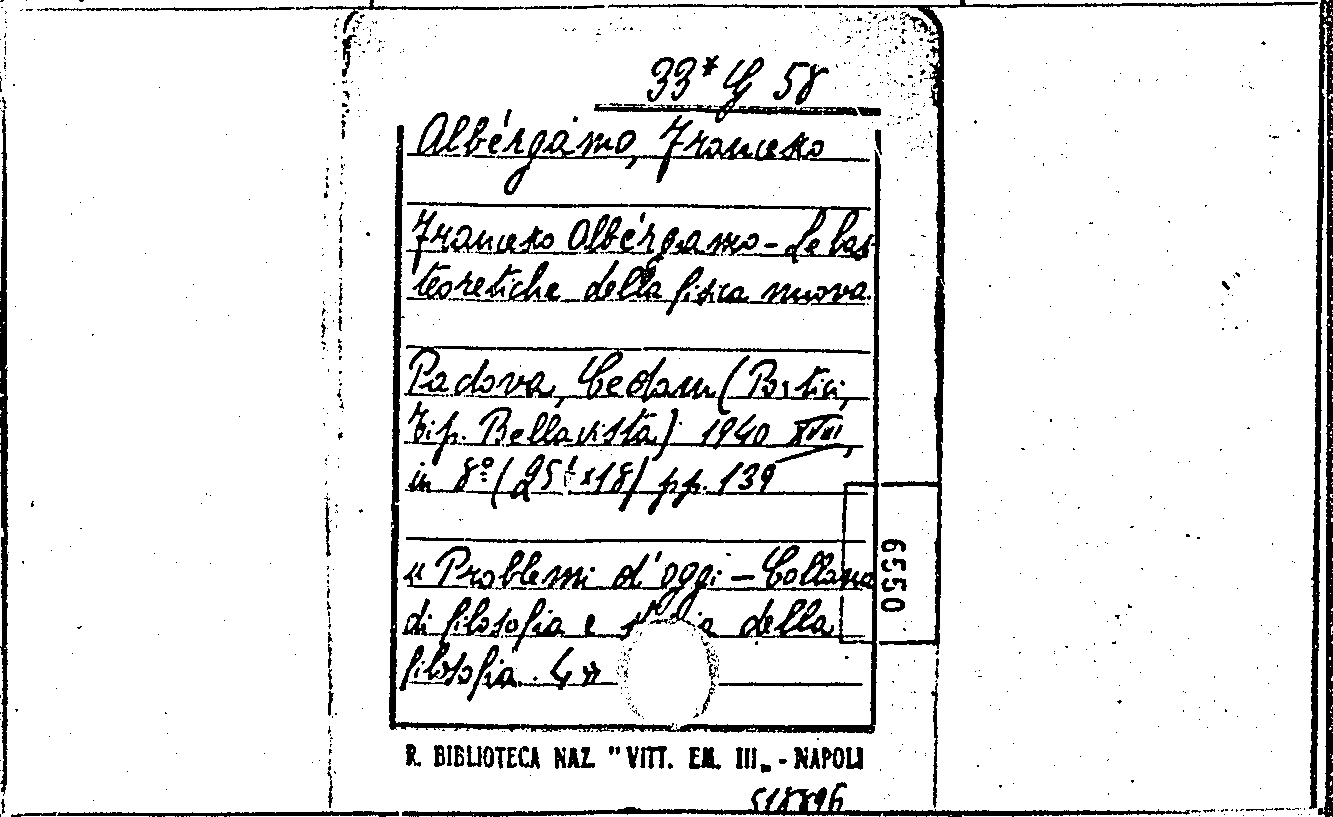 33* G 58
Albérgamo, Francesco
Francesco Albérgamo - Le bas
teoretiche della fisica nuova.
Padova, Cedam (Portici,
Tip. Bellavista) 1940 XVIII,
in 8º (25 x18) pp. 139
6550
« Problemi d'oggi - Collana
di filosofia e della
filosofia. 4 »
R. BIBLIOTECA NAZ. "VITT. EM. III„ - NAPOLI
518896